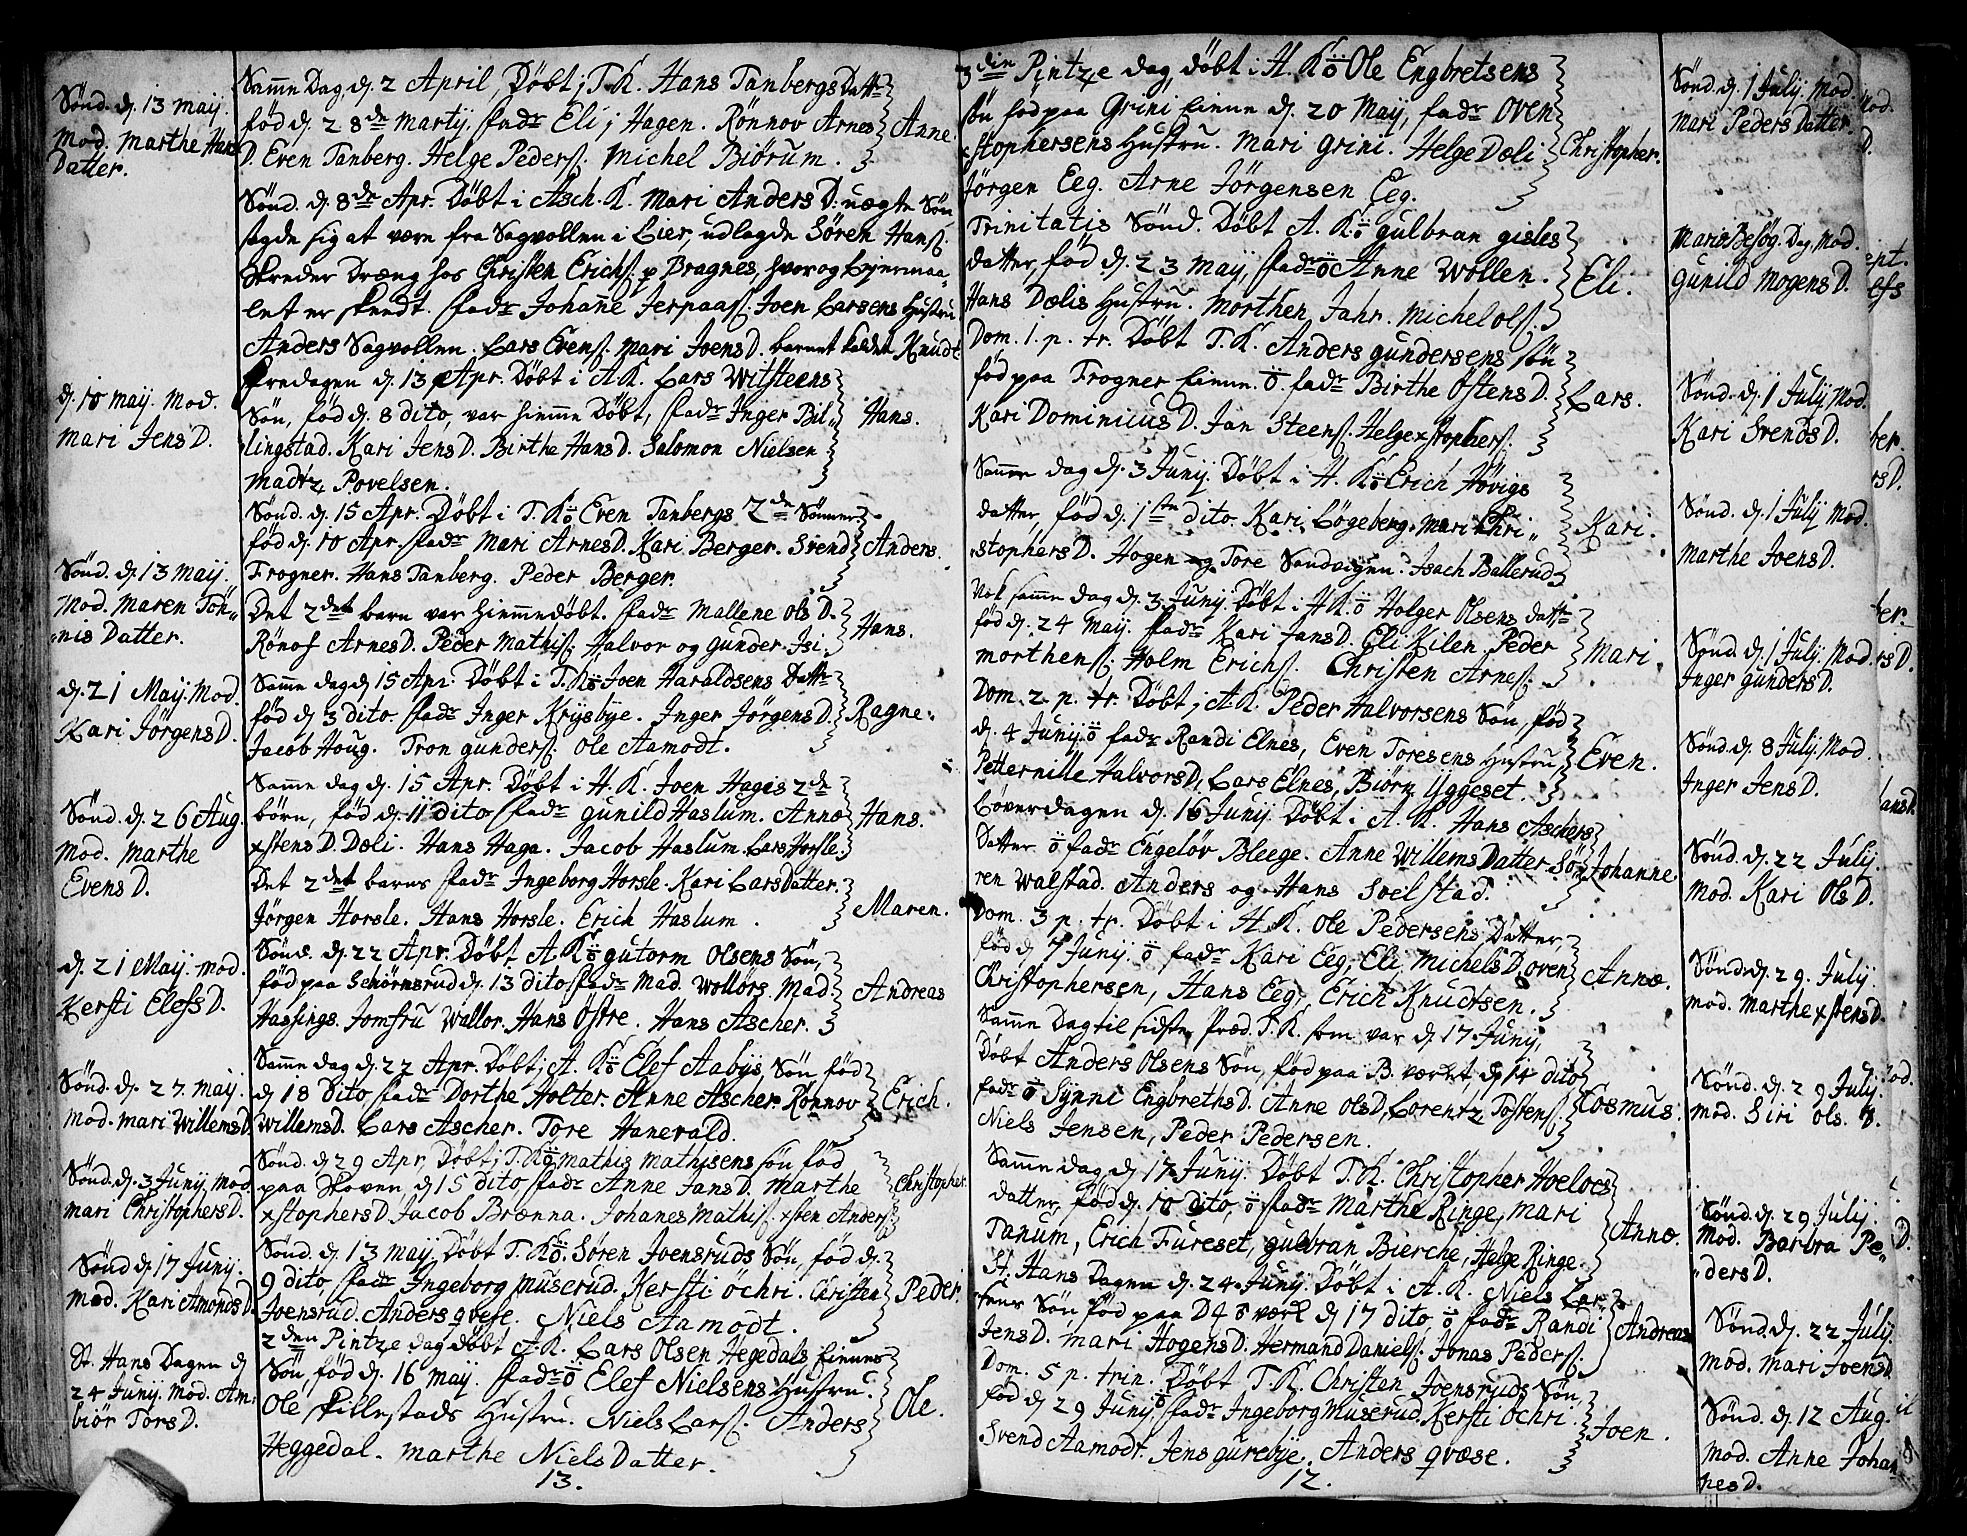 Sønd. dj. 13 maij.
Mod. Marthe Hans
Datter.
dj. 10 maij. Mod.
Mari Jens D.
Sønd. dj. 13 maij.
Mod. Maren Tön„
„nis Datter.
dj. 21 Maij. Mod.
Kari Jörgens D.
Sønd. dj. 26 Aug.
Mod. Marthe
Evens D.
dj. 21 Maij. mod.
Kersti Elefs D.
Sønd. dj. 27. maij.
Mod. mari Willems D.
Sønd. dj. 3 Junij, Mod.
mari Christophers D.
Sønd dj. 17 Junij.
Mod. Kari Amonds D.
St. Hans Dagen dj
24 Junij. Mod. Am„
biör Tors D.
Samme Dag, dj. 2 April, Döbt i T. K. Hans Tanbergs Dattr
föd dj. 28de martij. fadr Eli i Hagen. Rönnov Arnes
D. Even Tanberg. Helge Peders. Michel Biörum.
Anne.
Sønd. dj. 8de Apr. Döbt i Asch. K. Mari Anders D. uægte Sön
sagde sig at være fra Sagvollen i Lier, udlagde Sören Hans.
Skreder Dræng hos Christen Erichs. p Bragnes, hvor og Leiermaa„
let er skeedt. fadr Johane Jerpaas. Joen Larsens Hustru
Anders Sagvollen. Lars Evens. Mari Joens D. barnet kaldet Knudt
Fredagen dj. 13 Apr. Döbt i A. K. Lars Witsteens
Sön, föd dj. 8 dito, var hiemme Döbt, fadr Inger Bil„
lingstad. Kari Jens D. Birthe Hans D. Salomon Nielsen
Madtz Povelsen.
Hans.
Sønd. dj. 15 Apr. Döbt i T. K. Even Tanbergs 2de Sönner
föd dj. 10 Apr. fadr Mari Arnes D. Kari Berger. Svend
Frogner. Hans Tanberg. Peder Berger.
Anders.
Det 2det barn var hiemmedöbt. fadr Mallene Ols D.
Rönof Arnes D. Peder Mathis. Halvor og Gunder Isi.
Hans.
Samme dag dj 15 Apr. Döbt i T. K. Joen Haraldsens Dattr
föd dj 3 dito fadr Inger Krysbye. Inger Jörgens D.
Jacob Houg. Tron Gunders. Ole Aamodt.
Ragne.
Samme dag dj. 15 Apr. Döbt i H. K. Joen Hagis 2de
börn, föd dj. 11 dito fadr Gunild Haslum. Anne
xstens D. Dæli. Hans Haga. Jacob Haslum. Lars Horsle.
Hans.
Det 2det barns fadr Ingeborg Horsle. Kari Lars Datter.
Jörgen Horsle. Hans Horsle. Erich Haslum.
Maren.
Sönd. dj. 22 Apr. Döbt A. K. Gutorm Olsens Sön,
föd paa Schörnsrud dj. 13 dito fadr Mad. Wollörs. Mad.
Hassings. Jomfru Wallor. Hans Östre. Hans Ascher.
Andreas
Samme dag dj. 22 Apr. Döbt i A. K. Elef Aabys Sön föd
dj 18 dito, fadr Dorthe Holter. Anne Ascher. Rönnov
Willems D. Lars Ascher. Tore Hanevald.
Erich.
Sönd. dj 29 Apr. Döbt i T. K. Mathis Mathisens sön föd
paa Skoven dj 15 dito, fadr Anne Jans D. Marthe
xstophers D Jacob Brænna. Johanes Mathis. xsten Anders.
Christopher.
Sönd. dj. 13 maij. Döbt T. K. Sören Joensruds Sön, föd dj.
9 dito, fadr Ingeborg Muserud. Kersti Ochri. Christen
Joensrud. Anders Qvese. Niels Aamodt.
Peder.
2den Pintze dag döbt A. K. Lars Olsen Hegedals
Sön, föd dj. 16 maij. fadr Elef Nielsens Hustru.
Ole Skillestads Hustru. Niels Lars. Anders
Heggedal. Marthe Niels Datter.
Ole.
13.
3die Pintze dag, döbt i H. K. Ole Engbretsens
sön föd paa Grini Eiene dj. 20 Maij, fadr Oven
xstophersens Hustru. Mari Grini. Helge Dæli
Jörgen Eeg. Arne Jörgensen Eeg.
Christopher.
Trinitatis Sönd. Döbt A. K. Gulbran Gisles
datter, föd dj. 23 Maij, fadr Anne Wollen.
Hans Dælis Hustru. Morthen Jahr. Michel Ols.
Eli.
Dom. 1. p. tr. Döbt T. K. Anders Gundersens sön
föd paa Frogner Eiene. fadr Birthe Östens D.
Kari Dominicus D. Jan Steens. Helge xstophers.
Lars.
Samme dag dj. 3 Junij. Döbt i H. K. Erich Hövigs
datter, föd dj. 1ste dito. Kari Lögeberg. Mari Chri„
stophers D. Hogen og Tore Sandvigen. Isach Ballerud
Kari.
Nok samme dag dj. 3 Junij. Döbt i H. K. Holger Olsens dattr
föd dj. 24 Maij. fadr Kari Jans D. Eli Kilen. Peder
Morthens. Holm Erichs. Christen Arnes.
Mari.
Dom. 2. p. tr. Döbt i A. K. Peder Halvorsens Sön, föd
dj. 4 Junij fadr Randi Elnes, Even Toresens Hustru
Petternille Halvors D, Lars Elnes, Biörn Yggeset.
Even.
Löverdagen dj. 16 Junij. Döbt i A. K. Hans Aschers
Datter fadr Engeløv Bleege. Anne Willems Datter. Sö„
ren Walstad. Anders og Hans Svelstad.
Johanne
Dom. 3 p. tr. Döbt i H. K. Ole Pedersens Datter,
föd dj 7 Junij. fadr Kari Eeg, Eli Michels D. Oven
Christophersen, Hans Eeg, Erich Knudtsen.
Anne.
Samme Dag til sidste Præd. T. K. som var dj 17 Junij,
Döbt Anders Olsens Sön, föd paa B. værket, dj 14 dito
fadr Synni Engbreths D. Anne Ols D, Lorentz Tostens.
Niels Jensen, Peder Pedersen.
Cosmus.
Samme dag dj 17 Junij. Döbt T. K. Christopher Hoeloes
datter, föd dj. 10 dito, fadr Marthe Ringe, Mari
Tanum, Erich Fureset, Gulbran Bierche, Helge Ringe.
Anne.
St. Hans Dagen dj. 24 Junij. Döbt i A. K. Niels Lar„
sens Sön, föd paa værk dj 17 dito, fadr Randi
Jens D. Mari Hogens D. Hermand Daniels. Jonas Peders.
Andreas
Dom. 5 p. trin. Döbt T. K. Christen Joensruds Sön
föd dj 29 Junij. fadr Ingeborg Muserud. Kersti Ochri.
Svend Aamodt. Jens Gurebye. Anders Qvæse.
Joen.
12.
Sønd. dj. 1 Julij. Mod.
Mari Peders Datter.
Mariæ Besög. Dag, Mod.
Gunild Mogens D.
Sønd. dj. 1 Julij Mod.
Kari Svends D.
Sønd. dj. 1 Julij Mod.
Marthe Joens D.
Sønd. dj. 1 Julij. Mod.
Inger Gunders D.
Sønd. dj. 8 Julij. Mod
Inger Jens D.
Sønd. dj. 22 Julij.
Mod. Kari Ols D.
Sønd. dj. 29. Julij.
Mod. Marthe xstens D.
Sønd. dj. 29 Julij.
Mod. Siri Ols. D.
Sønd. dj. 29 Julij.
Mod. Barbra Pe„
„ders D.
Sønd. dj. 22 Julij
Mod. Mari Joens D
Sønd. dj. 12 Aug.
Mod. Anne Johan
nes D.